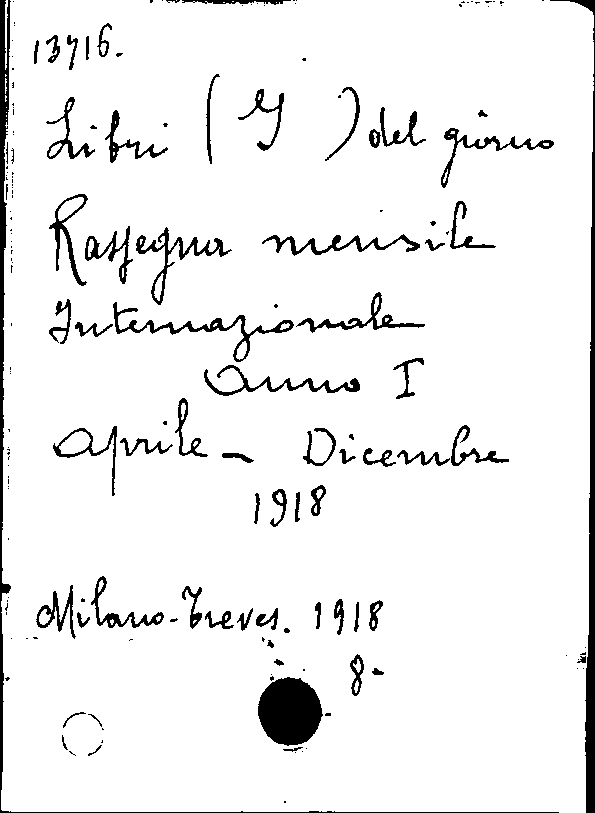 13716.
Libri (I) del giorno
Rassegna mensile
Internazionale
Anno I
Aprile - Dicembre
1918
Milano - Treves. 1918
8-